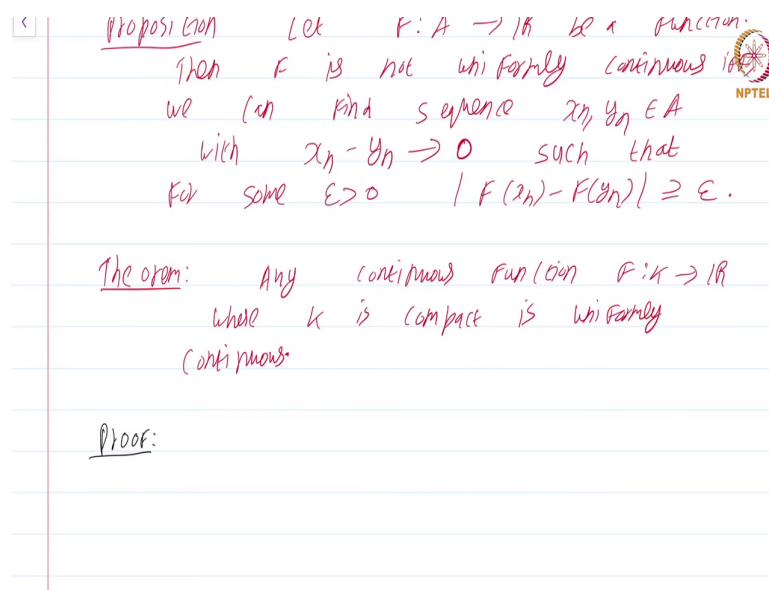 Proposition Let F : A → IR be a function.
Then F is not uniformly continuous iff
NPTEL
we can find sequence xn, yn ∈ A
with xn - yn → 0 such that
For some ε > 0 | F(xn) - F(yn) | ≥ ε.
Theorem: Any continuous Function F : K → IR
where K is compact is uniformly
continuous.
Proof: